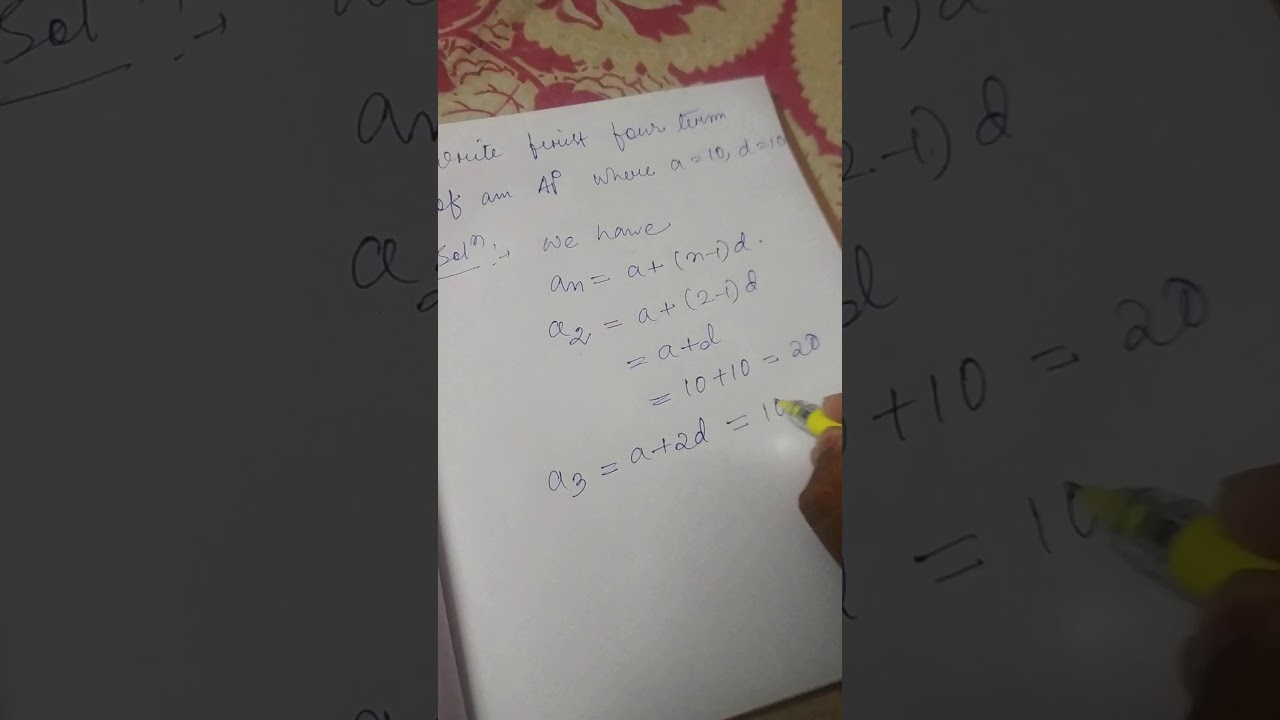 write first four term
of an AP where a=10, d=10
Solⁿ:→ We have
an = a+(n-1)d.
a2 = a+(2-1)d
= a+d
= 10+10 = 20
a3 = a+2d = 10